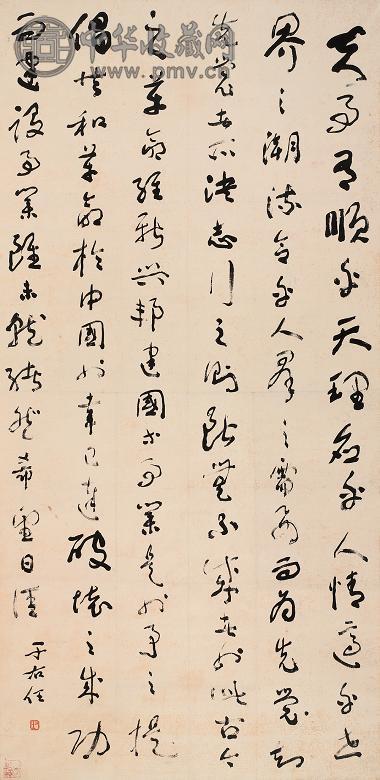 夫事有順乎天理應乎人情適乎世
界之潮流合乎人群之需要而為先覺知
先覺者所決志行之則斷無不成者也此古今
之革命維新興邦建國等事業是也予之提
倡共和革命於中國也幸已達破壞之成功
而建設事業雖未就緒然希望日佳
于右任
中华收藏网
www.pmv.cn